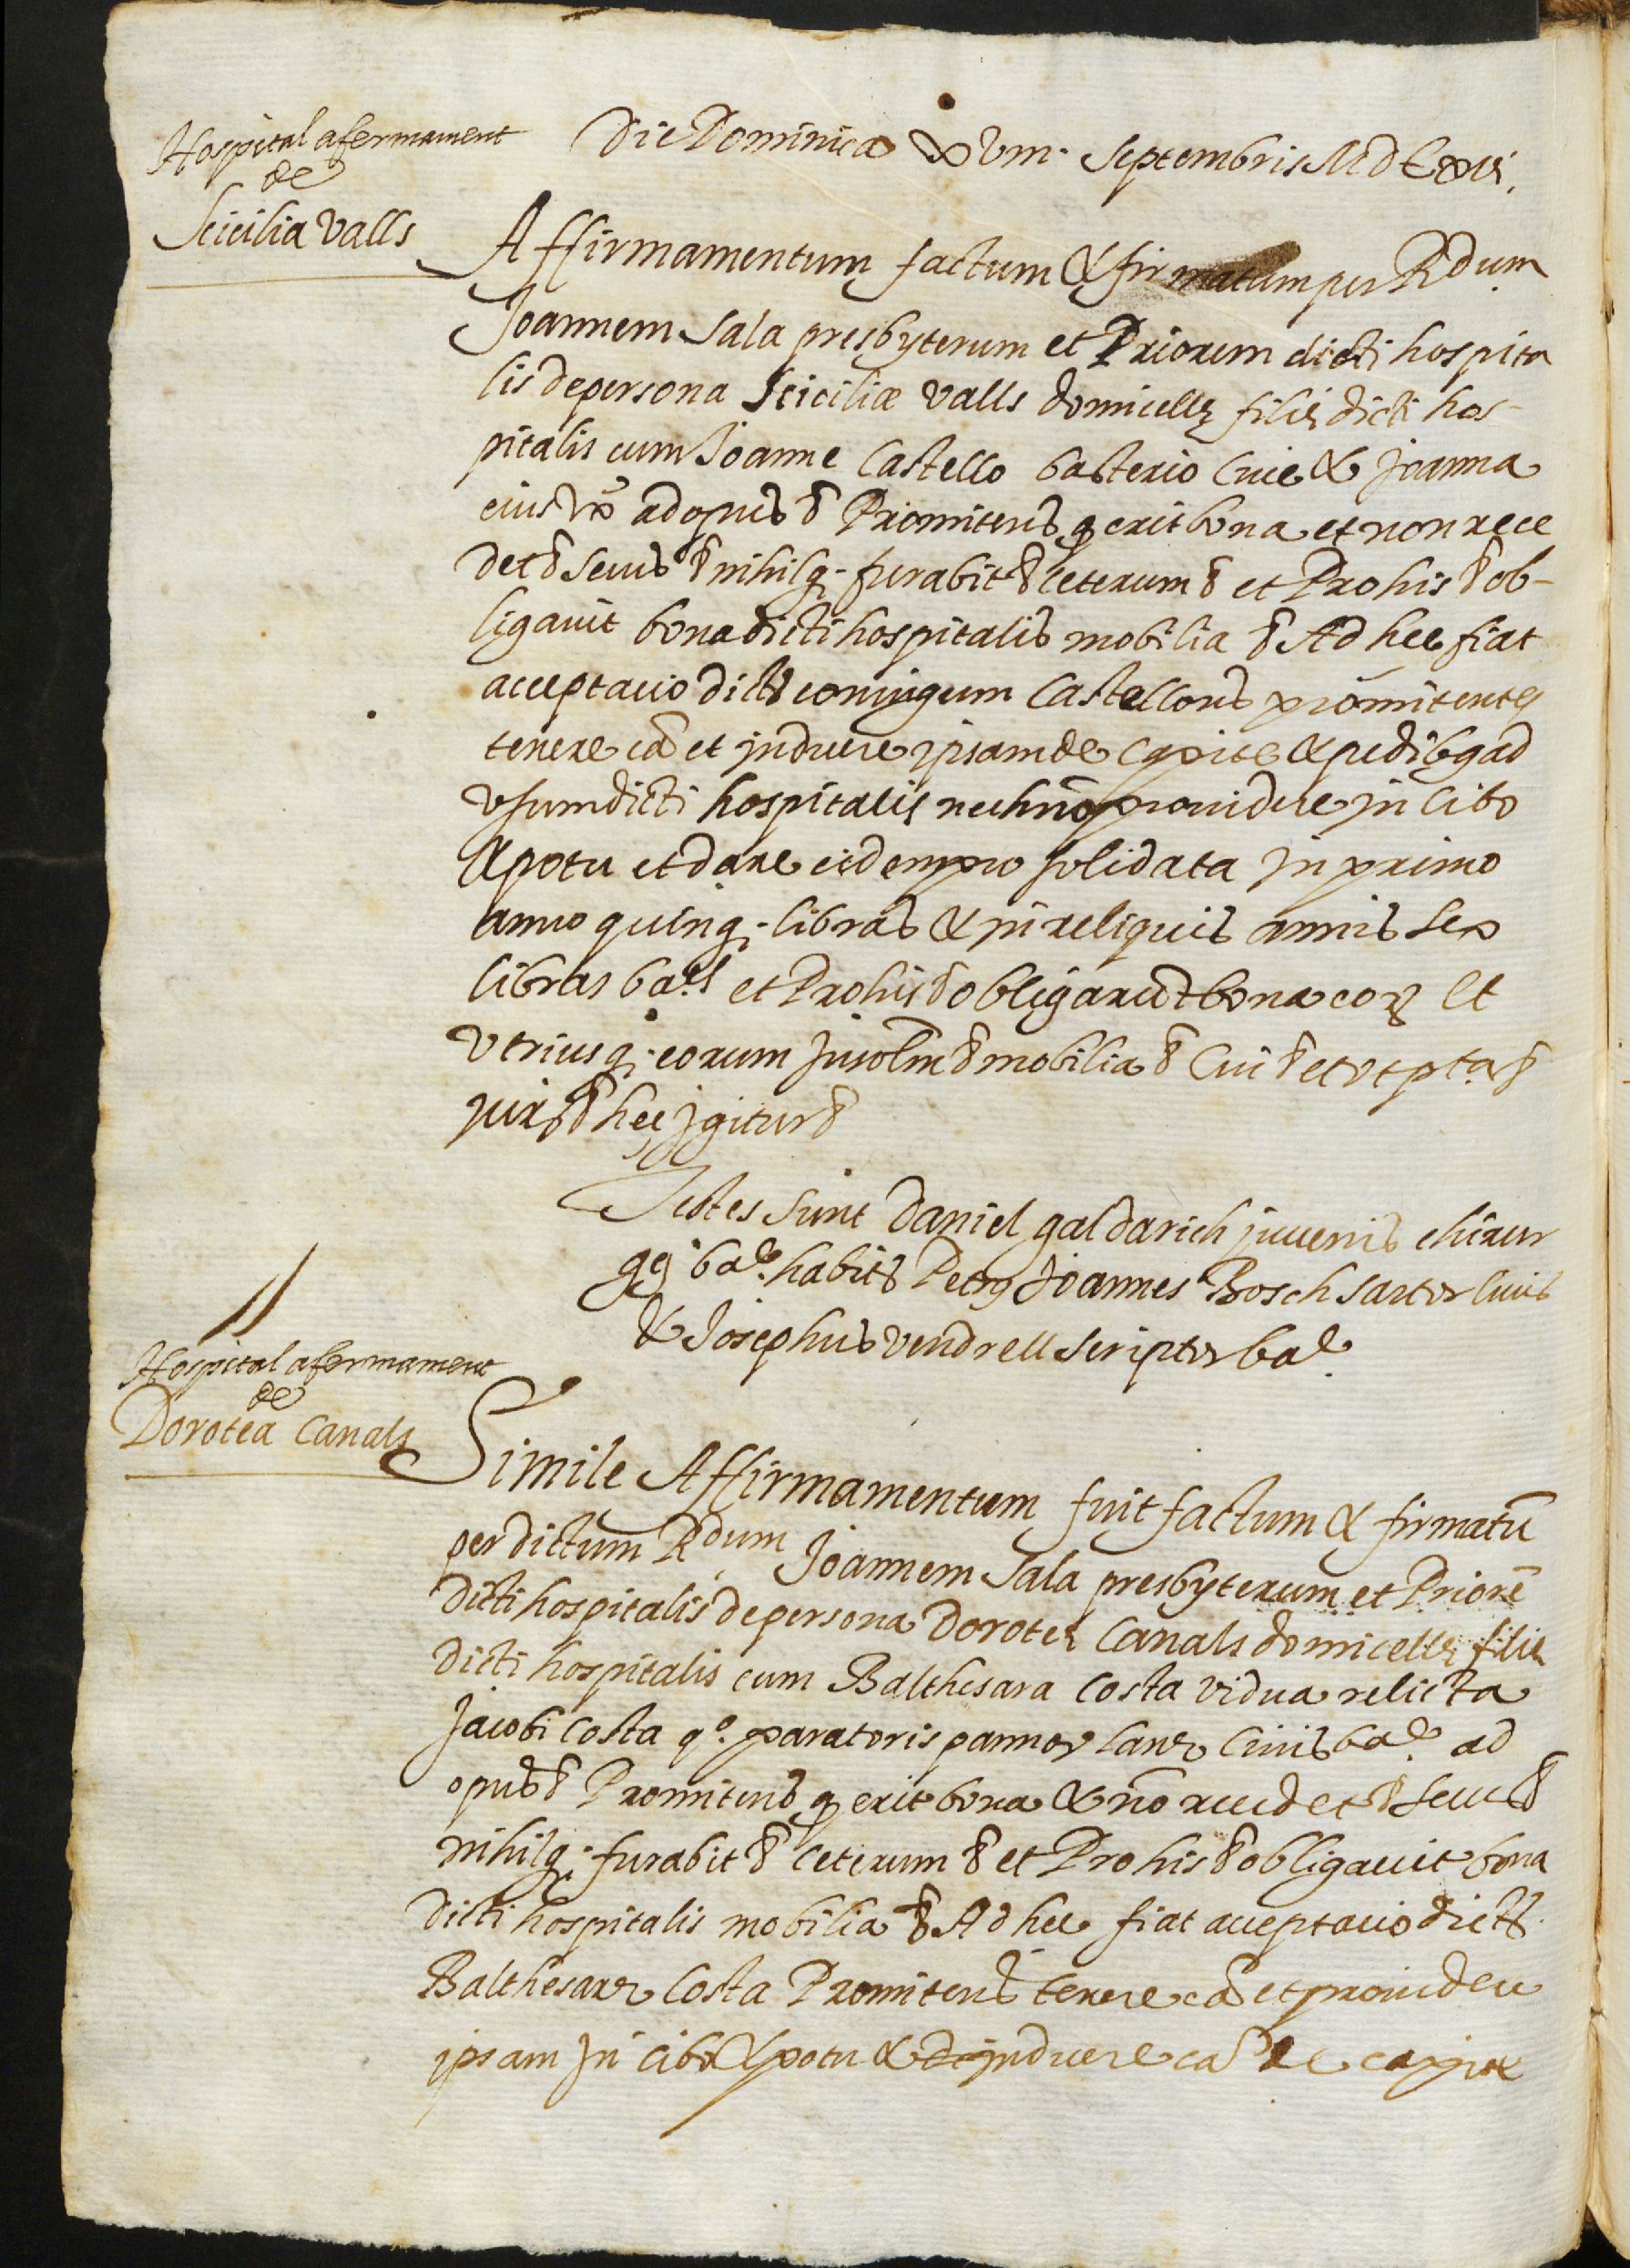 Hospital afermament
de
Scicilia Valls
Die Dominica xviii. Septembris MdCxvi.
Affirmamentum factum & firmatum per Rdum
Joannem Sala presbyterum et Priorem dicti hospita
lis de persona Sciciliæ Valls domicellę filię dicti hos-
pitalis cum Joanne Castello basterio Cive & Joanna
eius vxe ad opus & Promitens q erit bona et non rece
det & servis & nihilq. furabit & Ceterum & et Pro his & ob-
ligavit bona dicti hospitalis mobilia & Ad hec fiat
acceptacio dicts coniugum Castellons promitentes
tenere eã et induere ipsam de Capite & pedibq ad
vsum dicti hospitalis nec nõ providere in Cibo
& potu et dare eidem pro solidata in primo
anno quinq. libras & in reliquis annis sex
libras bals et Pro his & obligarũt bona eorȝ et
vtriusq. eorum insolm & mobilia & Cui & et vt pta &
jur & hec igitur &
Testes sunt Daniel galdarich juvenis chirur
gq bale habits Petrus Joannes Bosch sartor Civis
& Josephus vendrell scriptor bale
Hospital afermament
de
Dorotea Canals
Simile Affirmamentum fuit factum & firmatũ
per dictum Rdum Joannem Sala presbyterum et Priorẽ
dicti hospitalis de persona Doroteę Canals domicellę filię
dicti hospitalis cum Balthesara Costa vidua relicta
Jacobi Costa qo. paratoris pannoȝ lanę Civis bale ad
opus & Promitens q erit bona & nõ recedet & servs &
nihilq. furabit & Ceterum & et Pro his & obligavit bona
dicti hospitalis mobilia & Ad hec fiat acceptacio dicts
Balthesarę Costa Promitens tenere eã et providere
ipsam in cibo & potu & induere eã de capite